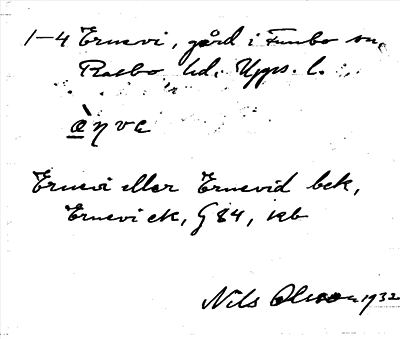 1-4 Ernevi, gård i Funbo sn,
Rasbo hd. Upps. l.
æ̀ηva
Ernevi eller Ernevid bek,
Ernevi ek, § 84, kb
Nils Olsson 1932